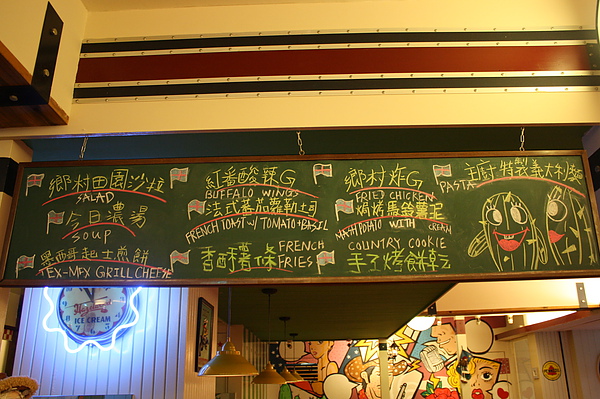 鄉村田園沙拉
SALAD
今日濃湯
SOUP
墨西哥起士煎餅
TEX-MEX GRILL CHEESE
紅番酸辣G
BUFFALO WINGS
法式蕃茄蘿勒土司
FRENCH TOAST W/ TOMATO+BASIL
香酥薯條 FRENCH FRIES
鄉村炸G
FRIED CHICKEN
焗烤馬鈴薯泥
MACH POTATO WITH CREAM
COUNTRY COOKIE
手工烤餅乾
主廚特製義大利麵
PASTA
ICE CREAM